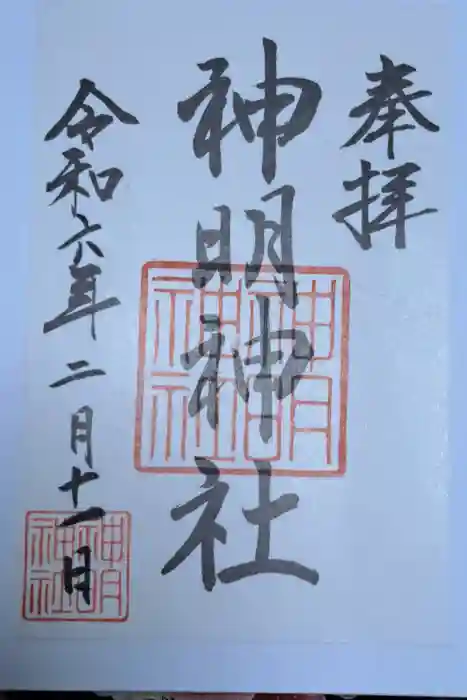 奉拝
神明神社
神明神社
令和六年二月十一日
神明神社